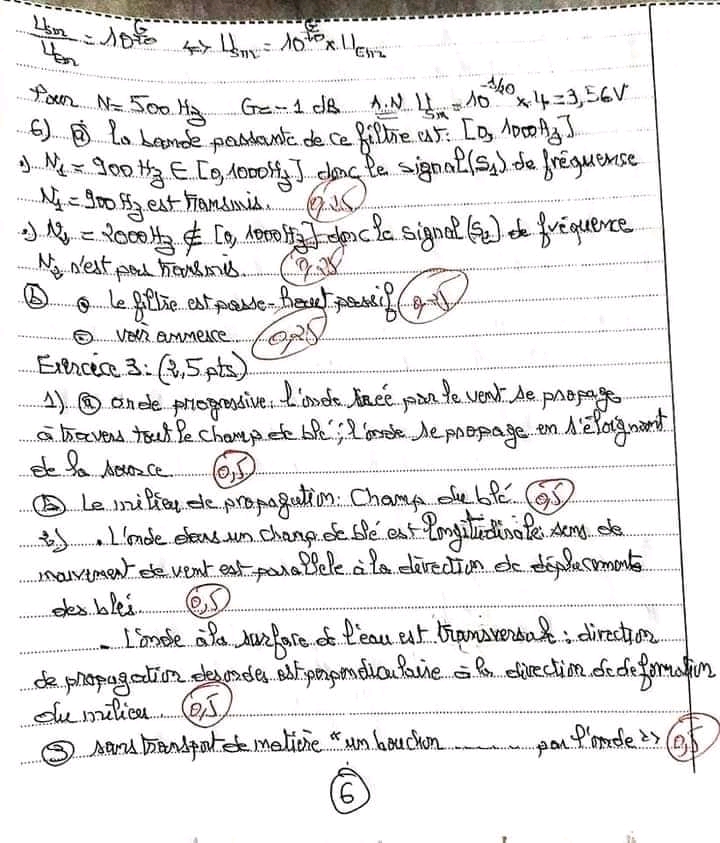 Usm/UEm = 10^G/20 <=> Usm = 10^G/20 x UEm
Pour N = 500 Hz G = -1 dB A.N Usm = 10^-1/20 x 4 = 3,56V
6) a) la bande passante de ce filtre est : [0, 1000Hz]
•) N1 = 900 Hz ∈ [0, 1000Hz] donc le signal (S1) de fréquence
N1 = 900 Hz est transmis. 0,25
•) N2 = 2000Hz ∉ [0, 1000Hz] donc le signal (S2) de fréquence
N2 n'est pas transmis. 0,25
b) • le filtre est passe-haut passif 0,25
• voir annexe 0,25
Exercice 3 : (2,5 pts)
1) a) onde progressive, l'onde créé par le vent se propage
à travers tout le champ de blé ; l'onde se propage en s'éloignant
de la source 0,5
b) Le milieu de propagation : Champ du blé. 0,5
2) . L'onde dans un champ de blé est longitudinale : sens de
mouvement de vent est parallèle à la direction de déplacements
des blés. 0,5
- L'onde à la surface de l'eau est transversale : direction
de propagation des ondes est perpendiculaire à la direction de deformation
du milieu 0,5
3) sans transport de matière "un bouchon ........... par l'onde >> 0,5
6